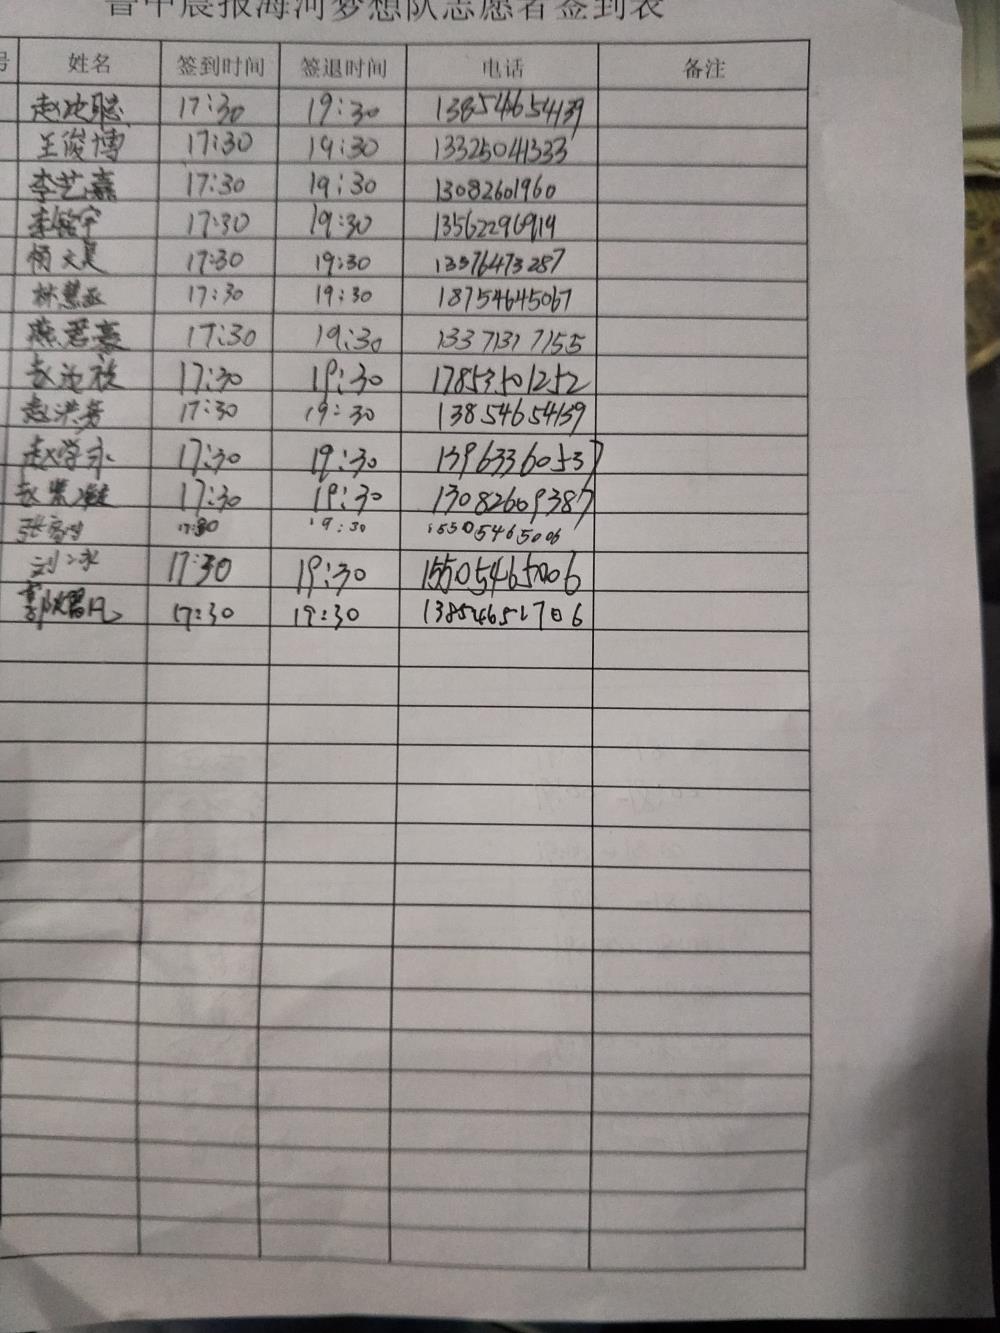 鲁中晨报海河梦想队志愿者签到表
号 姓名 签到时间 签退时间 电话 备注
17:30 19:30 13854654139
王俊博 17:30 19:30 13325041333
李艺嘉 17:30 19:30 13082601960
李铭宇 17:30 19:30 13562296919
杨文昊 17:30 19:30 13376473287
林慧丞 17:30 19:30 18754645067
燕君豪 17:30 19:30 13371317155
17:30 19:30 17853501252
赵洪芳 17:30 19:30 13854654139
赵学永 17:30 19:30 13963360537
17:30 19:30 13082609387
17:30 19:30 15505465006
17:30 19:30 15505465006
17:30 19:30 13854651706